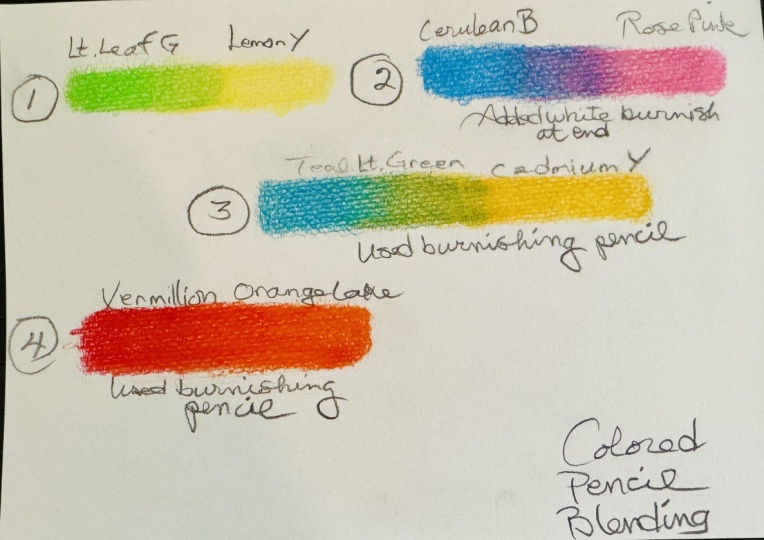 Lt. Leaf G Lemon Y
1
Cerulean B Rose Pink
2
Added white burnish
at end
Teal Lt. Green Cadmium Y
3
Used burnishing pencil
Vermillion Orange Lake
4
Used burnishing
pencil
Colored
Pencil
Blending